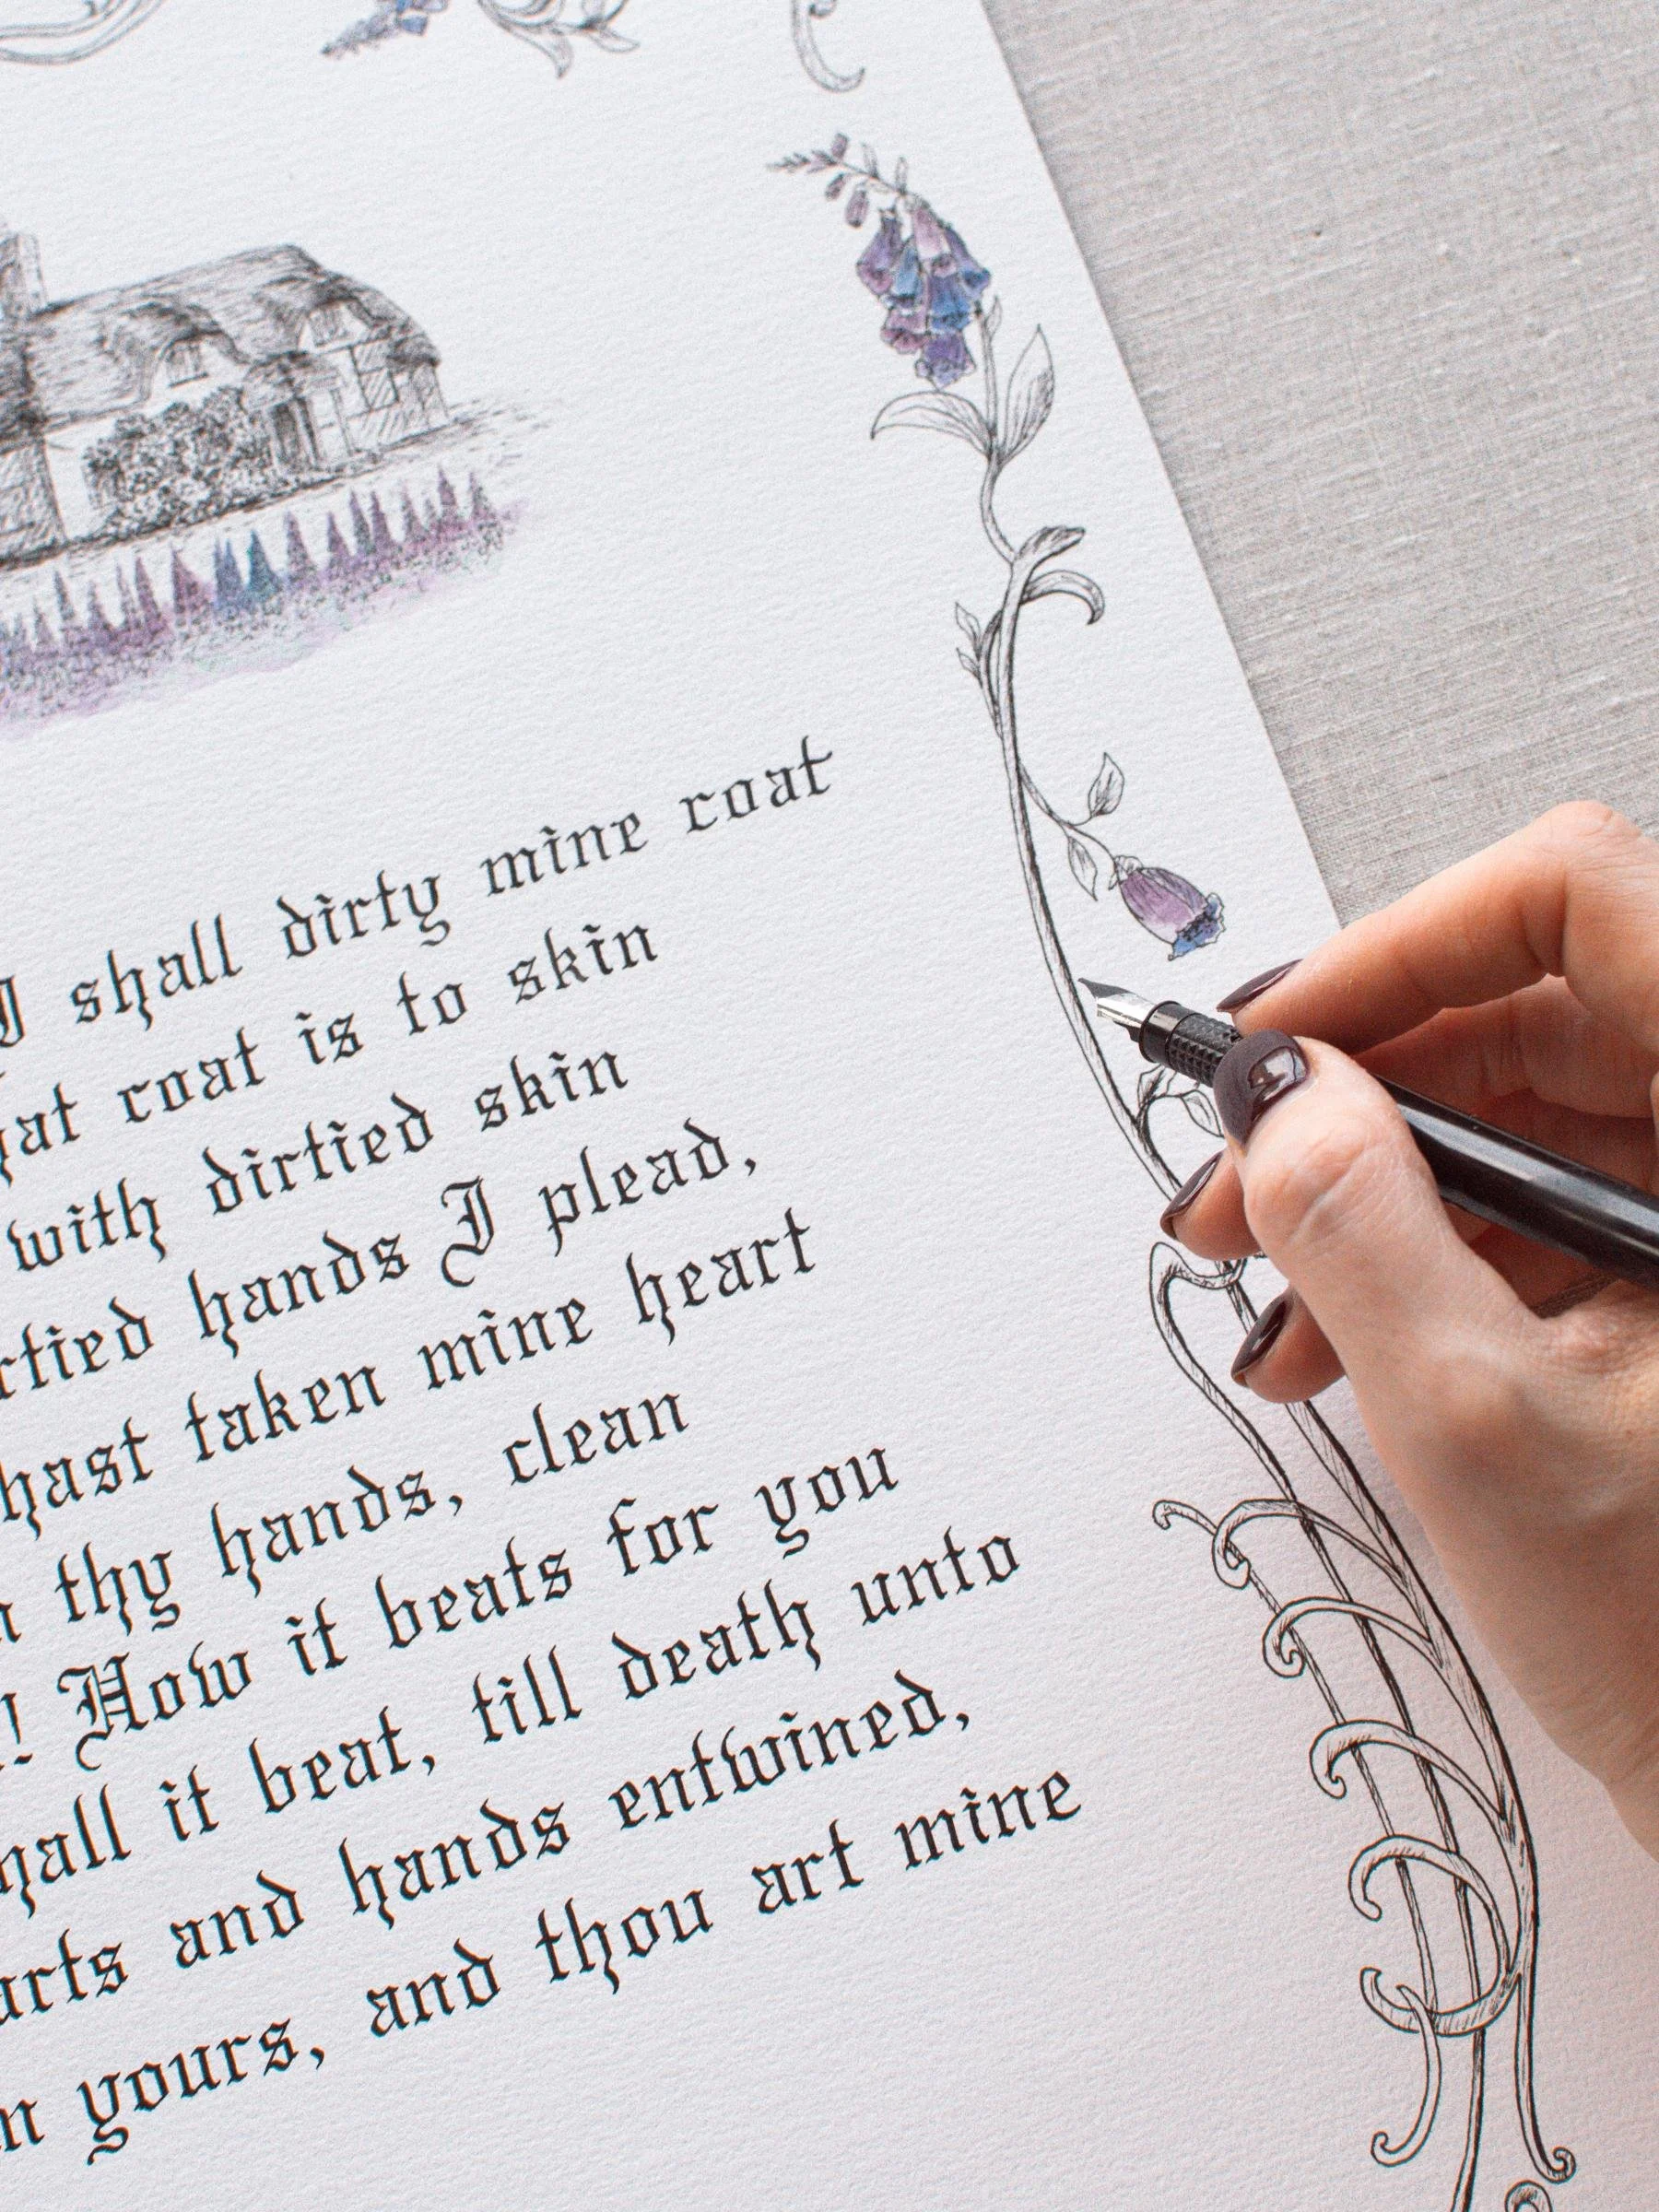 I shall dirty mine coat
coat is to skin
with dirtied skin
hands I plead,
hast taken mine heart
thy hands, clean
! How it beats for you
it beat, till death unto
and hands entwined,
yours, and thou art mine